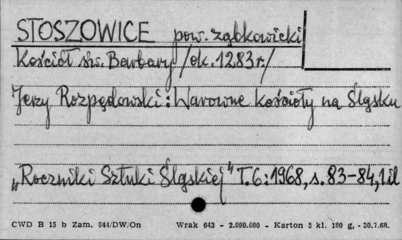 STOSZOWICE pow. ząbkowicki
Kościół św. Barbary /ok. 1283 r./
Jerzy Rozpędowski: Warowne kościoły na Śląsku
"Roczniki Sztuki Śląskiej" T. 6: 1968, s. 83-84, 1 il
CWD B 15 b Zam. 844/DW/On Wrak 643 - 2.000.000 - Karton 3 kl. 180 g, - 30.7.68.